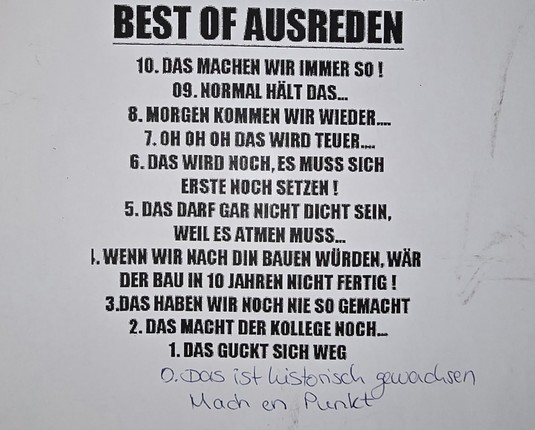 BEST OF AUSREDEN
10. DAS MACHEN WIR IMMER SO !
09. NORMAL HÄLT DAS...
8. MORGEN KOMMEN WIR WIEDER....
7. OH OH OH DAS WIRD TEUER....
6. DAS WIRD NOCH, ES MUSS SICH
ERSTE NOCH SETZEN !
5. DAS DARF GAR NICHT DICHT SEIN,
WEIL ES ATMEN MUSS...
4. WENN WIR NACH DIN BAUEN WÜRDEN, WÄR
DER BAU IN 10 JAHREN NICHT FERTIG !
3.DAS HABEN WIR NOCH NIE SO GEMACHT
2. DAS MACHT DER KOLLEGE NOCH...
1. DAS GUCKT SICH WEG
0. Das ist historisch gewachsen
Mach en Punkt